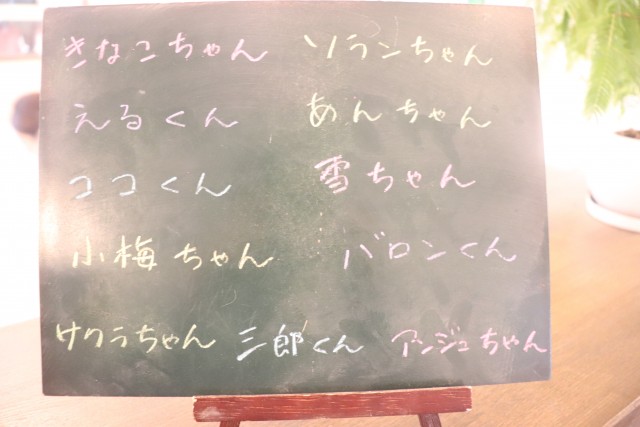 きなこちゃん ソランちゃん
えるくん あんちゃん
ココくん 雪ちゃん
小梅ちゃん バロンくん
サクラちゃん 三郎くん アンジュちゃん